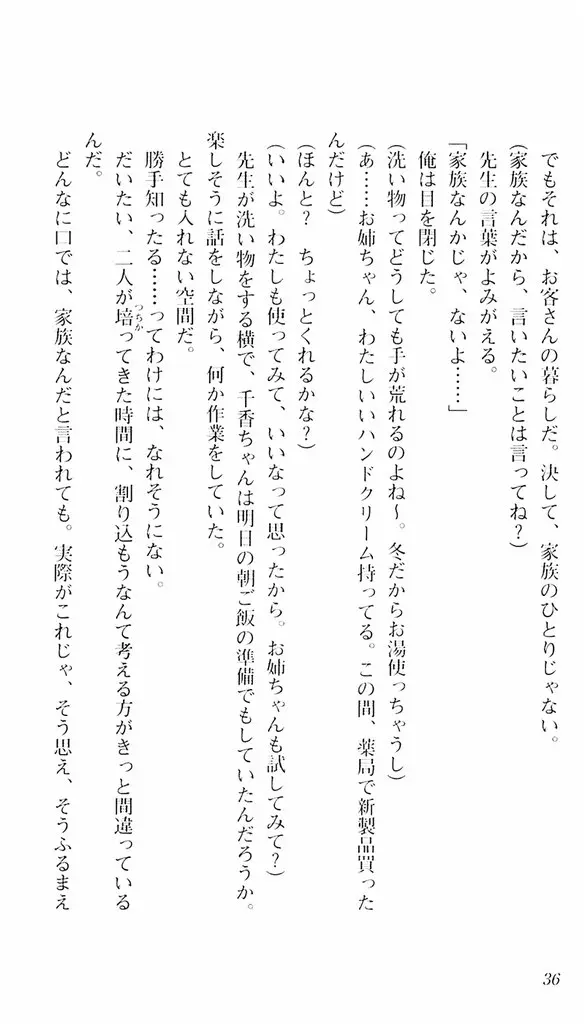 でもそれは、お客さんの暮らしだ。決して、家族のひとりじゃない。
(家族なんだから、言いたいことは言ってね?)
先生の言葉がよみがえる。
「家族なんかじゃ、ないよ……」
俺は目を閉じた。
(洗い物ってどうしても手が荒れるのよね〜。冬だからお湯使っちゃうし)
(あ……お姉ちゃん、わたしいいハンドクリーム持ってる。この間、薬局で新製品買った
んだけど)
(ほんと? ちょっとくれるかな?)
(いいよ。わたしも使ってみて、いいなって思ったから。お姉ちゃんも試してみて?)
先生が洗い物をする横で、千香ちゃんは明日の朝ご飯の準備でもしていたんだろうか。
楽しそうに話をしながら、何か作業をしていた。
とても入れない空間だ。
勝手知ったる……ってわけには、なれそうにない。
だいたい、二人が培つちかってきた時間に、割り込もうなんて考える方がきっと間違っている
んだ。
どんなに口では、家族なんだと言われても。実際がこれじゃ、そう思え、そうふるまえ
36